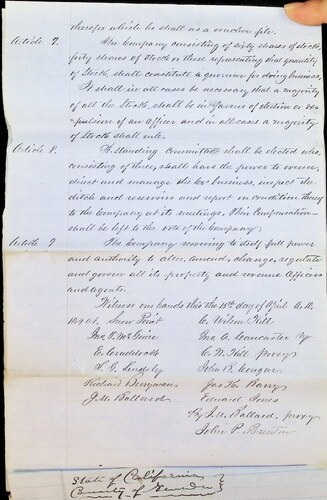 therefor which he shall as a voucher file.
Article 7. The Company consisting of sixty shares of stock,
forty shares of stock or those representing that quantity
of Stock, shall constitute a quorum for doing business,
It shall in all cases be necessary that a majority
of all the Stock, shall be in favor of election or ex-
pulsion of an Officer and in all cases a majority
of Stock shall rule.
Article 8. A Standing Committee shall be elected who,
consisting of three, shall have the power to oversee,
direct and manage the Co's business, inspect the
ditch and reservoirs and report on condition thereof
to the Company at its meetings. Their Compensation
shall be left to the vote of the Company.
Article 9 The Company reserving to itself full power
and authority to alter, amend, change, regulate
and govern all its property and revenue Officers
and agents.
Witness our hands this the 18th day of April A.D.
1854 at Snow Point C. Wilson Hill
Jno. T. McGuire Jno. A. Lancaster
E. Craddock C. W. Hill proxy
A. G. Lindsley John B. Conger
Richard Berryman Jas. H. Barry
J. M. Ballard Edward Jones
By J. M. Ballard, proxy
John P. Brenton
State of California
County of Nevada